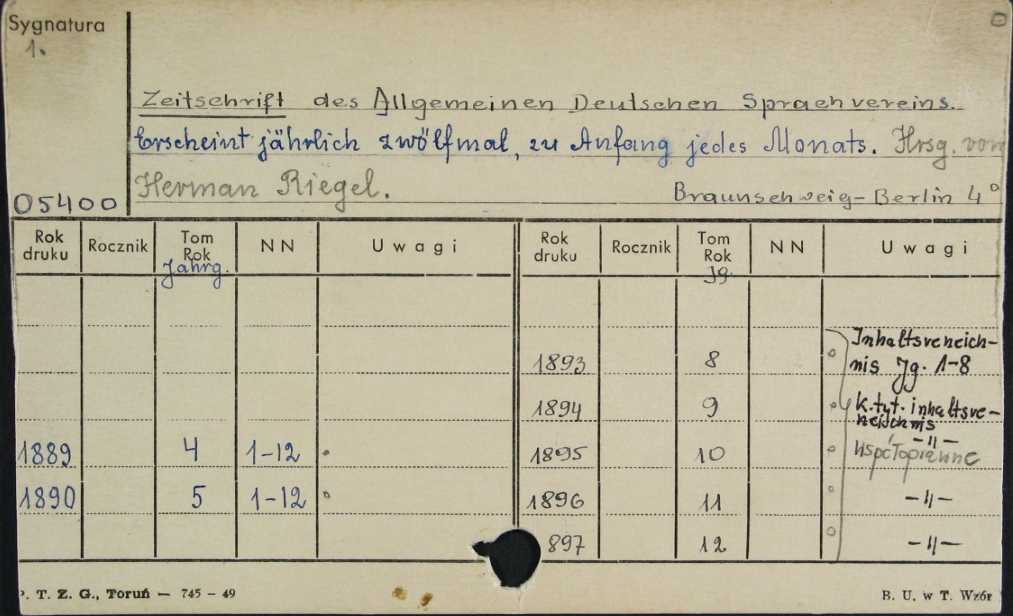 Sygnatura
1.
Zeitschrift des Allgemeinen Deutschen Sprachvereins.
Erscheint jährlich zwölfmal, zu Anfang jedes Monats. Hrsg. von
Herman Riegel. Braunschweig-Berlin 4°
05400
Rok druku Rocznik Tom Rok Jahrg. NN Uwagi Rok druku Rocznik Tom Rok Jg. NN Uwagi
Inhaltsverzeich-
1893 8 nis Jg. 1-8
1894 9 K. tyt. inhaltsve-
neichnis
1889 4 1-12 1895 10 -"-
współoprawne
1890 5 1-12 1896 11 -"-
897 12 -"-
P. T. Z. G., Toruń — 745 - 49 B. U. w T. Wzór